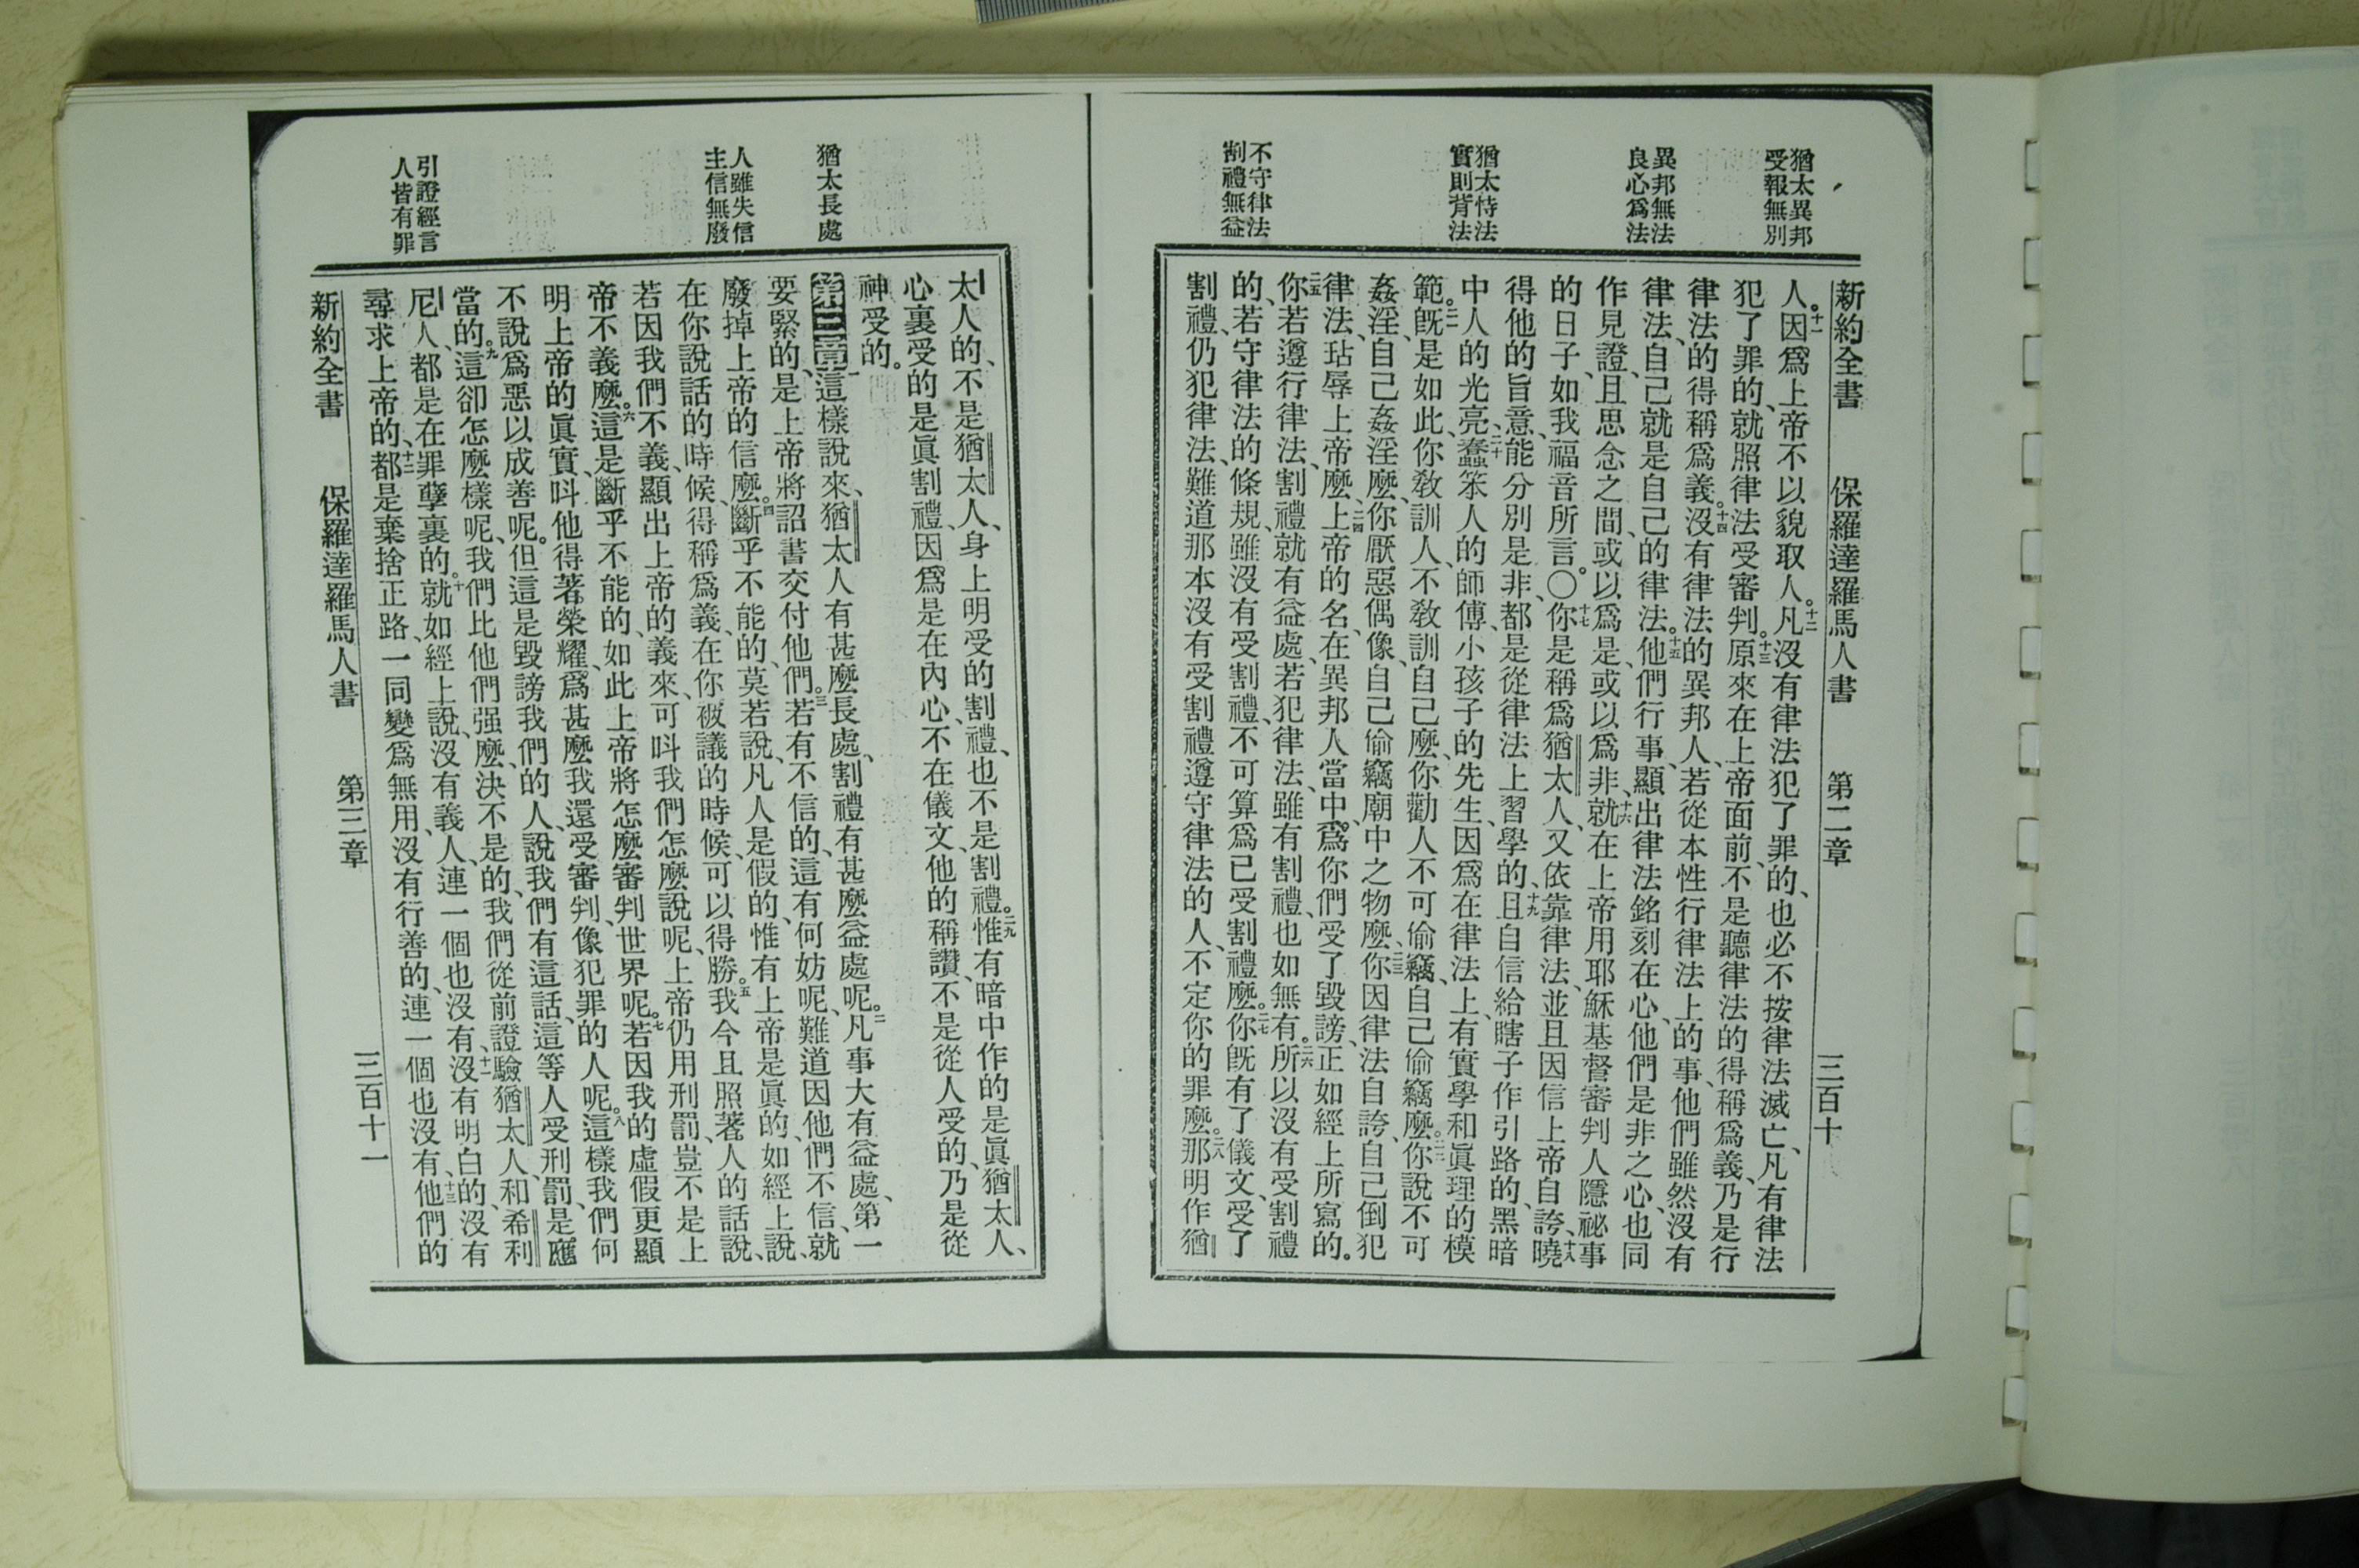 猶太異邦
受報無別
異邦無法
良心爲法
猶太恃法
實則背法
不守律法
割禮無益
新約全書 保羅達羅馬人書 第二章 三百十
人。十一因爲上帝不以貌取人。十二凡沒有律法犯了罪的、也必不按律法滅亡、凡有律法
犯了罪的、就照律法受審判。十三原來在上帝面前、不是聽律法的得稱爲義、乃是行
律法的得稱爲義。十四沒有律法的異邦人、若從本性行律法上的事、他們雖然沒有
律法、自己就是自己的律法。十五他們行事、顯出律法銘刻在心、他們是非之心、也同
作見證、且思念之間、或以爲是、或以爲非、十六就在上帝用耶穌基督審判人隱祕事
的日子、如我福音所言。〇十七你是稱爲猶太人、又依靠律法、並且因信上帝自誇、十八曉
得他的旨意、能分別是非、都是從律法上習學的、十九且自信給瞎子作引路的、黑暗
中人的光亮、二十蠢笨人的師傅、小孩子的先生、因爲在律法上、有實學和眞理的模
範。二一旣是如此、你敎訓人、不敎訓自己麽、你勸人不可偷竊、自己偷竊麽。二二你說不可
姦淫、自己姦淫麽、你厭惡偶像、自己偷竊廟中之物麽、二三你因律法自誇、自己倒犯
律法、玷辱上帝麽、二四上帝的名、在異邦人當中、爲你們受了毀謗、正如經上所寫的。
二五你若遵行律法、割禮就有益處、若犯律法、雖有割禮、也如無有。二六所以沒有受割禮
的、若守律法的條規、雖沒有受割禮、不可算爲已受割禮麽。二七你旣有了儀文、受了
割禮、仍犯律法、難道那本沒有受割禮遵守律法的人、不定你的罪麽。二八那明作猶
猶太長處
人雖失信
主信無廢
引證經言
人皆有罪
太人的、不是猶太人、身上明受的割禮、也不是割禮。二九惟有暗中作的是眞猶太人、
心裏受的是眞割禮、因爲是在內心、不在儀文、他的稱讚、不是從人受的、乃是從
神受的。
第三章一這樣說來、猶太人有甚麽長處、割禮有甚麽益處呢。二凡事大有益處、第一
要緊的、是上帝將詔書交付他們。三若有不信的、這有何妨呢、難道因他們不信、就
廢掉上帝的信麽。四斷乎不能的、莫若說、凡人是假的、惟有上帝是眞的、如經上說、
在你說話的時候、得稱爲義、在你被議的時候、可以得勝。五我今且照著人的話說、
若因我們不義、顯出上帝的義來、可呌我們怎麽說呢、上帝仍用刑罰、豈不是上
帝不義麽。六這是斷乎不能的、如此上帝將怎麽審判世界呢。七若因我的虛假更顯
明上帝的眞實、呌他得著榮耀、爲甚麽我還受審判、像犯罪的人呢。八這樣我們何
不說爲惡以成善呢。但這是毀謗我們的人、說我們有這話、這等人受刑罰、是應
當的。九這卻怎麽樣呢、我們比他們强麽、決不是的、我們從前證驗猶太人、和希利
尼人、都是在罪孽裏的。十就如經上說、沒有義人、連一個也沒有、十一沒有明白的、沒有
尋求上帝的、十二都是棄捨正路、一同變爲無用、沒有行善的、連一個也沒有、十三他們的
新約全書 保羅達羅馬人書 第三章 三百十一